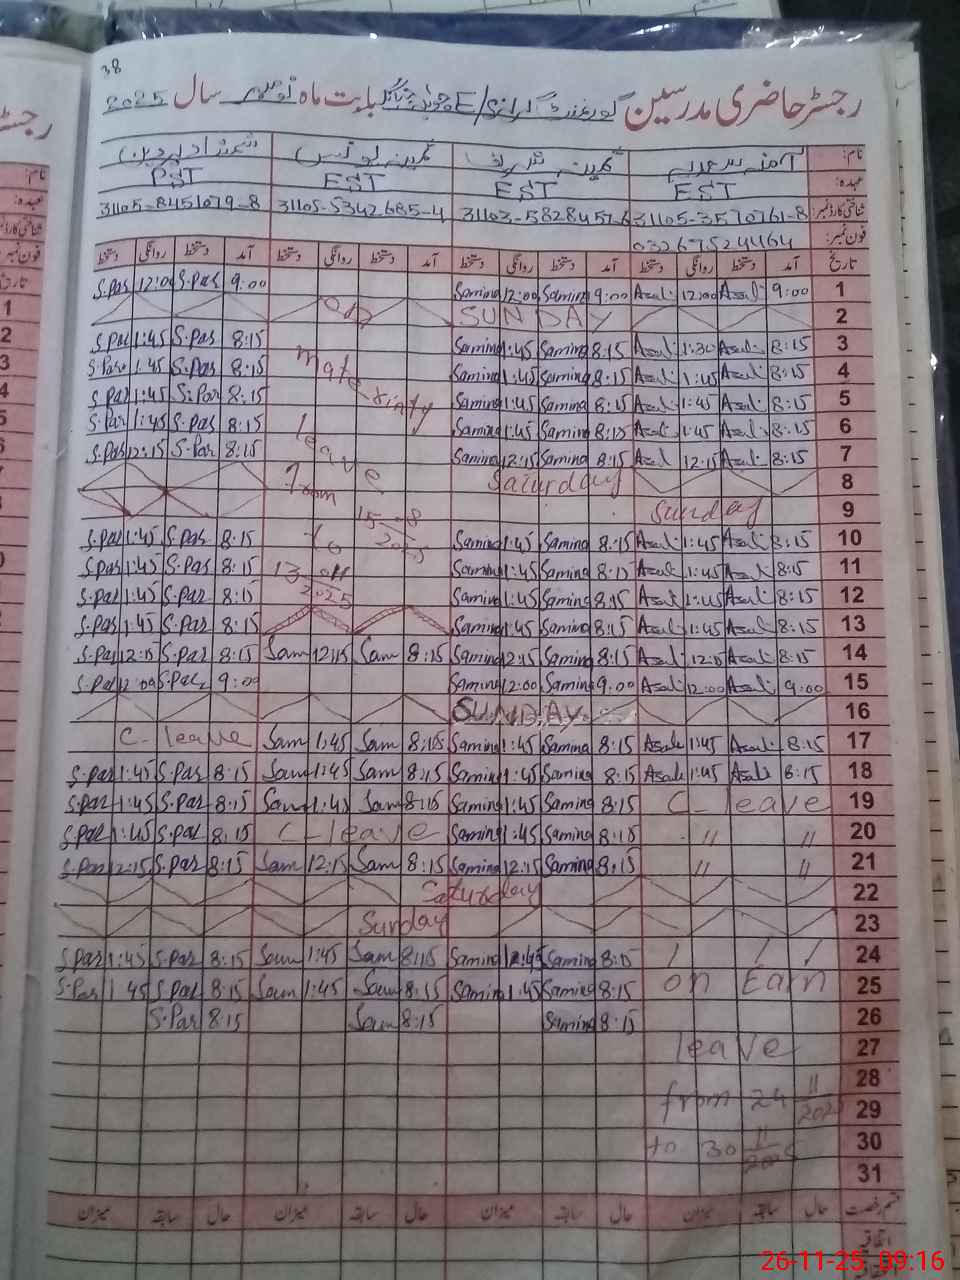 38
رجسٹر حاضری مدرسین گورنمنٹ گرلز E/S بابت ماہ نومبر سال 2025
نام: آمنہ سعدیہ ثمینہ شریف ثمینہ یونس شمشاد پروین
عہدہ: EST EST EST PST
شناختی کارڈ نمبر: 31105-3570761-8 31103-5828457-6 31105-5342685-4 31105-8451079-8
فون نمبر: 03267524464
تاریخ آمد دستخط روانگی دستخط آمد دستخط روانگی دستخط آمد دستخط روانگی دستخط آمد دستخط روانگی دستخط
S.Par 12:00 S.Par 9:00 on Samina 12:00 Samina 9:00 Asal 12:00 Asal 9:00 1
SUNDAY 2
S.Par 1:45 S.Par 8:15 Samina 1:45 Samina 8:15 Asal 1:30 Asal 8:15 3
S.Par 1:45 S.Par 8:15 Mate Samina 1:45 Samina 8:15 Asal 1:45 Asal 8:15 4
S.Par 1:45 S.Par 8:15 rinty Samina 1:45 Samina 8:15 Asal 1:45 Asal 8:15 5
S.Par 1:45 S.Par 8:15 leave Samina 1:45 Samina 8:15 Asal 1:45 Asal 8:15 6
S.Par 12:15 S.Par 8:15 Samina 12:15 Samina 8:15 Asal 12:15 Asal 8:15 7
From Saturday 8
15-8 2025 Sunday 9
S.Par 1:45 S.Par 8:15 to Samina 1:45 Samina 8:15 Asal 1:45 Asal 8:15 10
S.Par 1:45 S.Par 8:15 13-11 2025 Samina 1:45 Samina 8:15 Asal 1:45 Asal 8:15 11
S.Par 1:45 S.Par 8:15 Samina 1:45 Samina 8:15 Asal 1:45 Asal 8:15 12
S.Par 1:45 S.Par 8:15 Samina 1:45 Samina 8:15 Asal 1:45 Asal 8:15 13
S.Par 12:15 S.Par 8:15 Sam 12:15 Sam 8:15 Samina 12:15 Samina 8:15 Asal 12:15 Asal 8:15 14
S.Par 12:00 S.Par 9:00 Samina 12:00 Samina 9:00 Asal 12:00 Asal 9:00 15
SUNDAY 16
C-leave Sam 1:45 Sam 8:15 Samina 1:45 Samina 8:15 Asal 1:45 Asal 8:15 17
S.Par 1:45 S.Par 8:15 Sam 1:45 Sam 8:15 Samina 1:45 Samina 8:15 Asal 1:45 Asal 8:15 18
S.Par 1:45 S.Par 8:15 Sam 1:45 Sam 8:15 Samina 1:45 Samina 8:15 C-leave 19
S.Par 1:45 S.Par 8:15 C-leave Samina 1:45 Samina 8:15 " " 20
S.Par 12:15 S.Par 8:15 Sam 12:15 Sam 8:15 Samina 12:15 Samina 8:15 " " 21
Saturday 22
Sunday 23
S.Par 1:45 S.Par 8:15 Sam 1:45 Sam 8:15 Samina 1:45 Samina 8:15 / / / 24
S.Par 1:45 S.Par 8:15 Sam 1:45 Sam 8:15 Samina 1:45 Samina 8:15 on Earn 25
S.Par 8:15 Sam 8:15 Samina 8:15 26
leave 27
28
from 24 11/2025 29
to 30 11/2025 30
31
قسم رخصت حال سابقہ میزان حال سابقہ میزان حال سابقہ میزان حال سابقہ میزان
اتفاقیہ
26-11-25 09:16